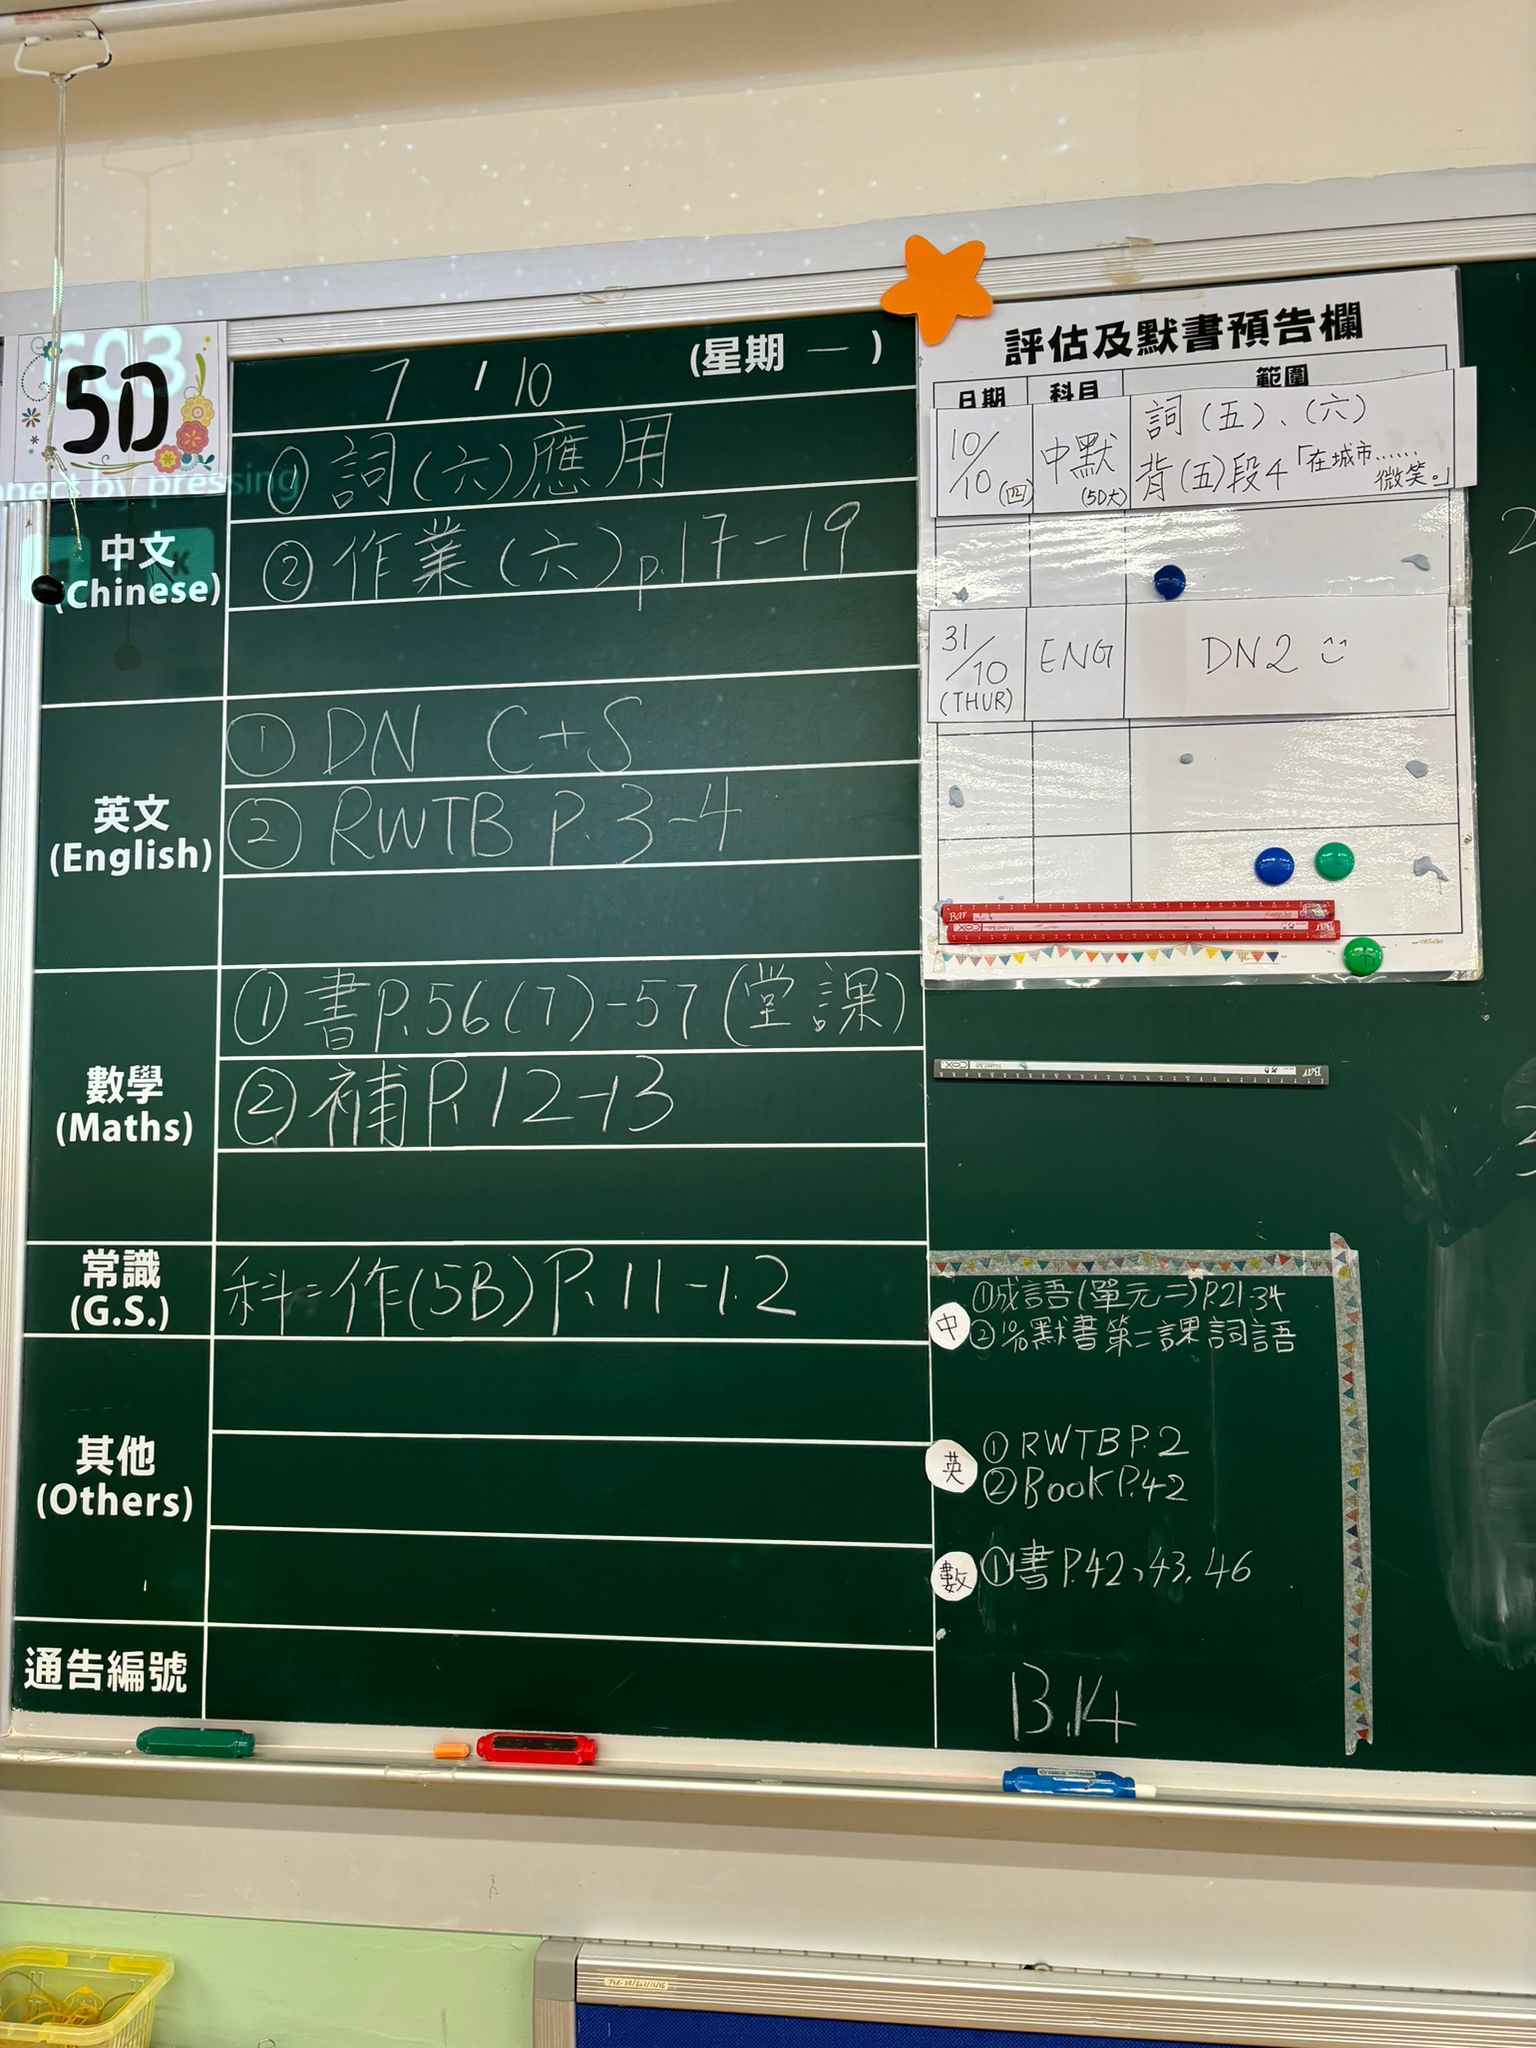 5D
7 / 10 (星期 一 )
中文
(Chinese)
① 詞(六)應用
② 作業(六)p.17-19
英文
(English)
① DN C+S
② RWTB P.3-4
數學
(Maths)
① 書P.56(7)-57(堂課)
② 補P.12-13
常識
(G.S.)
科二作(5B)P.11-12
其他
(Others)
通告編號
評估及默書預告欄
日期 科目 範圍
10/10(四) 中默(5D大) 詞(五)、(六)
背(五)段4「在城市……微笑。」
31/10(THUR) ENG DN2
中
①成語(單元二)P.21-34
②10/10默書第二課詞語
英
① RWTB P.2
② Book P.42
數
①書P.42、43、46
B.14